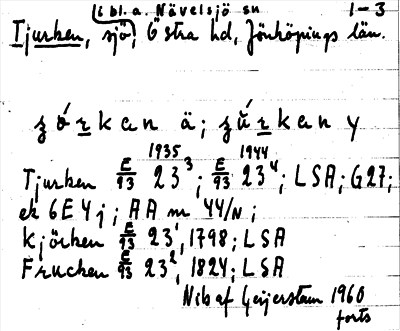 i bl. a. Nävelsjö sn 1-3
Tjurken, sjö, Östra hd, Jönköpings län.
zórkan ä; zúrkan y
Tjurken E/93 23³ 1935; E/93 23⁴ 1944; LSA; G27;
ek 6E4j; AA m 44/N;
Kjörken E/93 23¹, 1798; LSA
Frucken E/93 23², 1824; LSA
Nib af Geijerstam 1960
forts